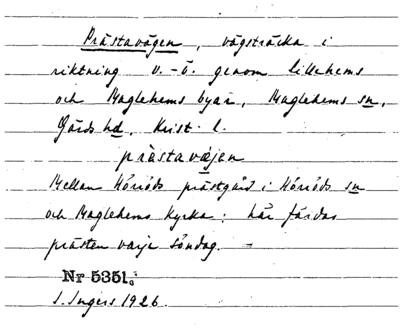 Prästavägen, vägsträcka i
riktning v.-ö. genom Lillehems
och Maglehems byar, Maglehems sn,
Gärds hd, Krist. l.
prästavæjen
Mellan Hörröds prästgård i Hörröds sn
och Maglehems kyrka: här färdas
prästen varje söndag. –
Nr 5351.
S. Ingers 1926.